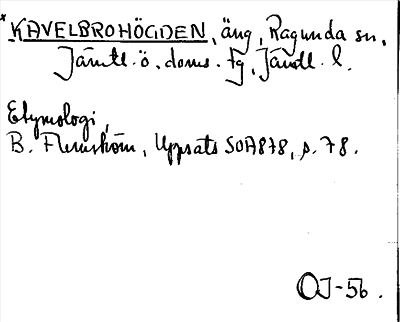 *KAVELBROHÖGDEN, äng, Ragunda sn,
Jämtl. ö. doms. tg, Jämtl. l.
Etymologi,
B. Flemström, Uppsats SOA878, s. 78.
OJ-56.